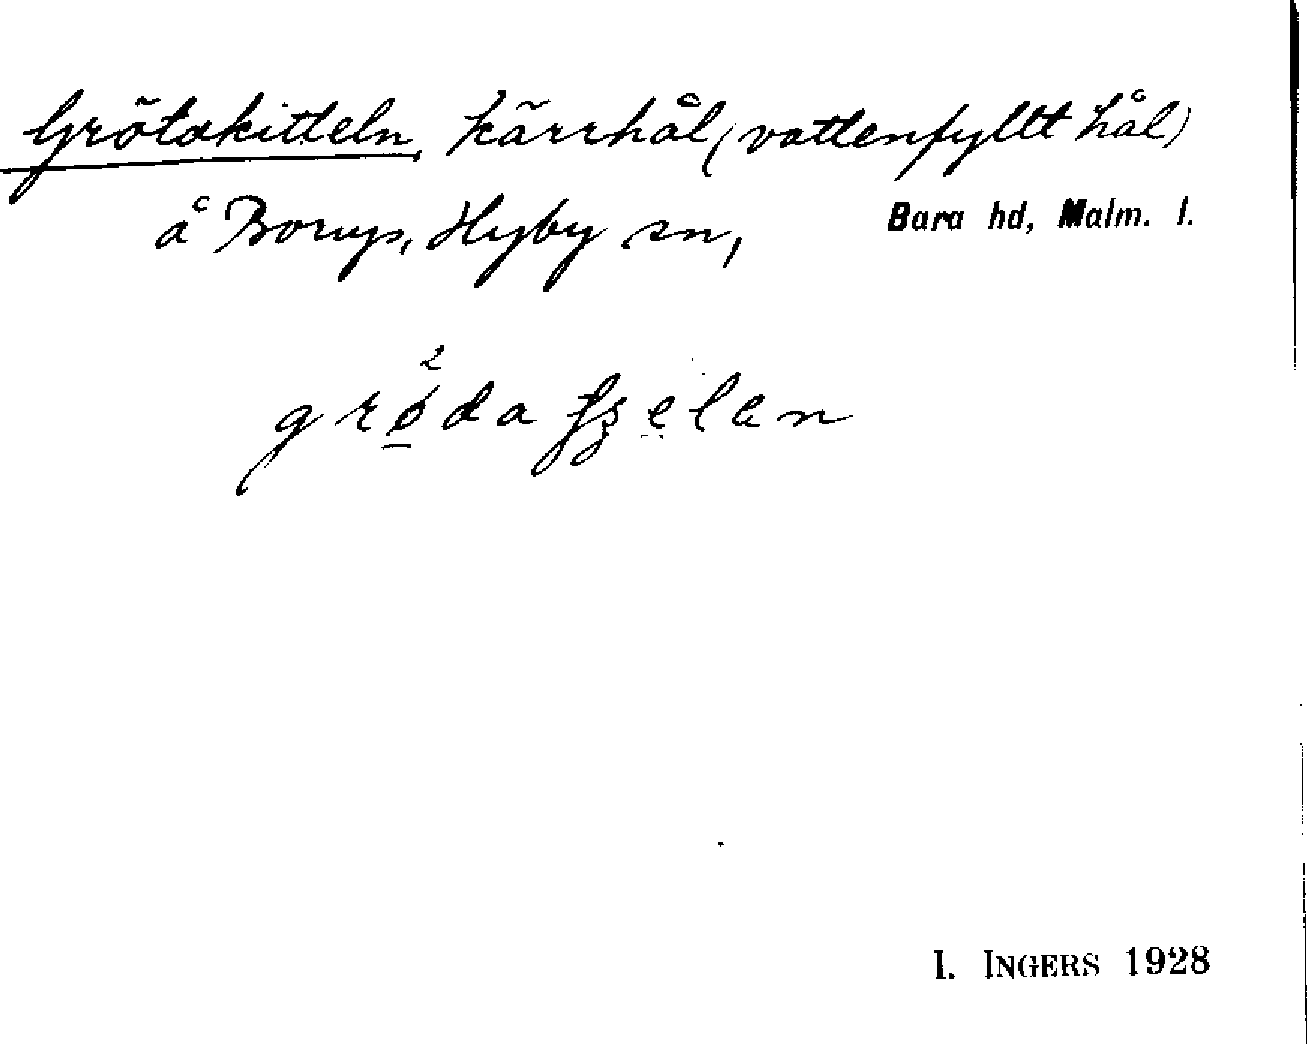 Grötakitteln, kärrhål (vattenfyllt hål)
å Borups, Hyby sn, Bara hd, Malm. l.
I. INGERS 1928